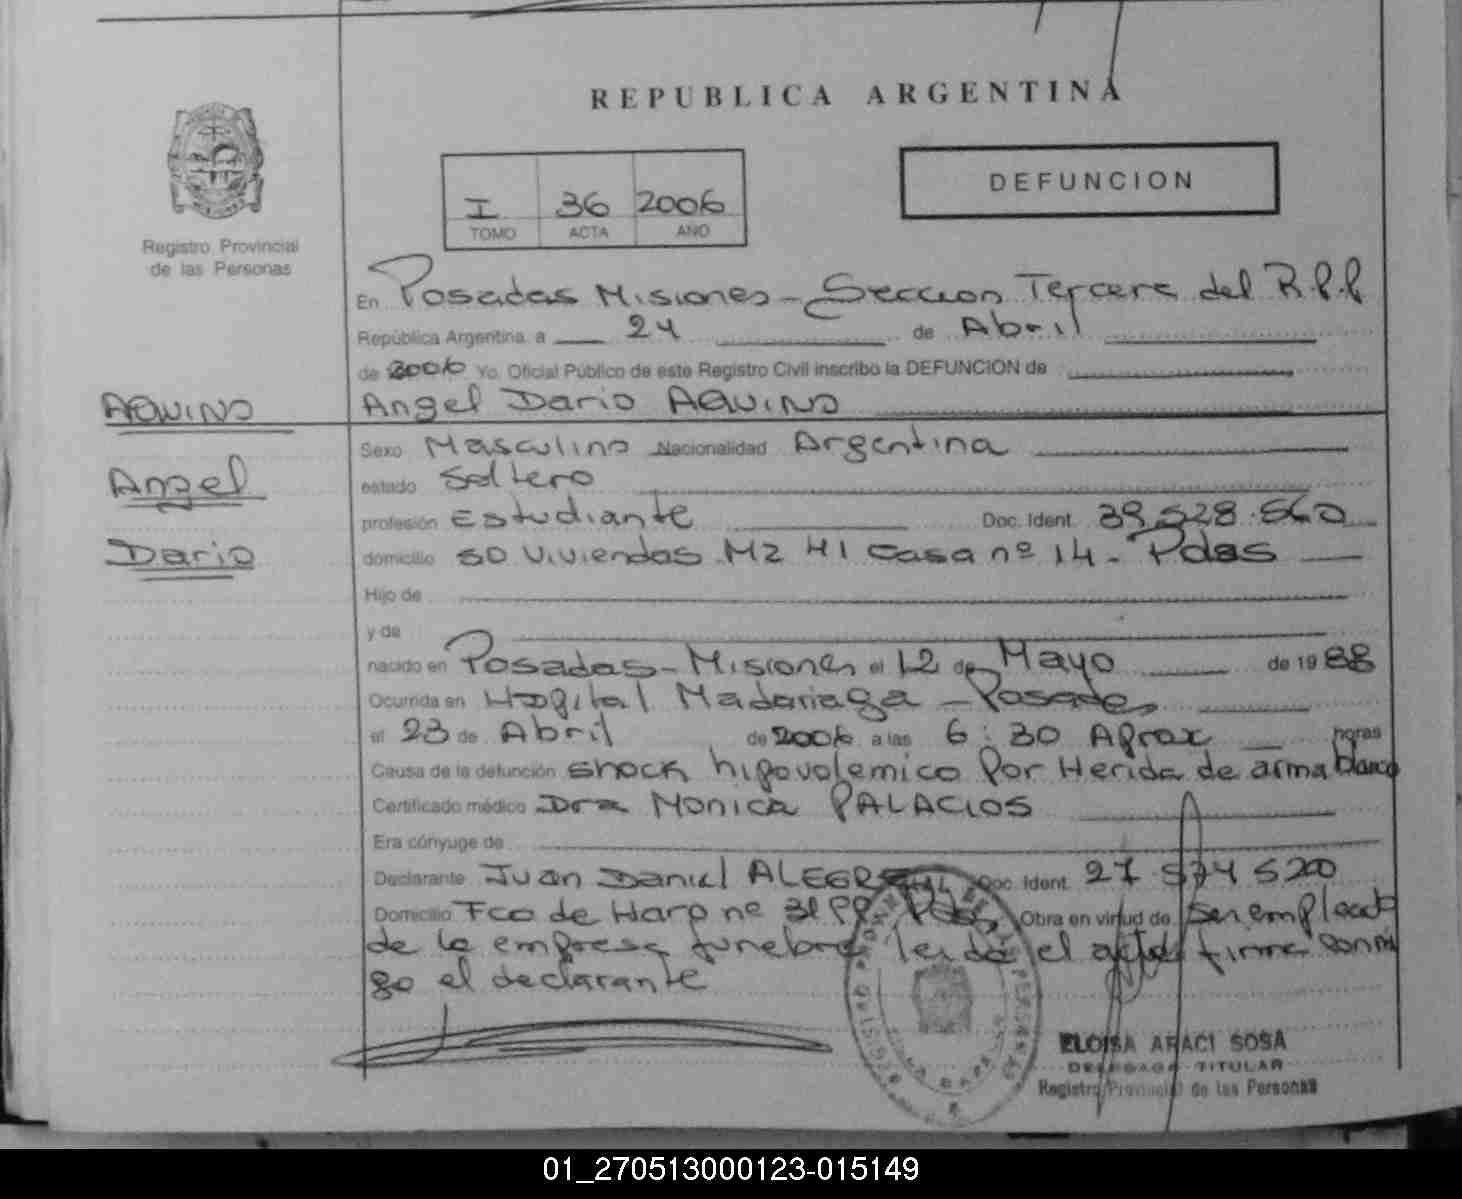 REPUBLICA ARGENTINA
DEFUNCION
I 36 2006
TOMO ACTA AÑO
Registro Provincial
de las Personas
En Posadas Misiones - Seccion Tercera del R.P.P
República Argentina a 24 de Abril
de 2006 Yo. Oficial Público de este Registro Civil inscribo la DEFUNCION de
AQUINO
Angel Dario AQUINO
Sexo Masculino Nacionalidad Argentina
Angel
estado Soltero
profesión Estudiante Doc. Ident. 39.528.560
Dario
domicilio 50 Viviendas Mz 41 Casa nº 14 - Pdas
Hijo de
y de
nacido en Posadas - Misiones el 12 de Mayo de 1988
Ocurrida en Hospital Madariaga - Posadas
el 23 de Abril de 2006 a las 6:30 Aprox horas
Causa de la defunción shock hipovolemico Por Herida de arma blanca
Certificado médico Dra Monica PALACIOS
Era cónyuge de
Declarante Juan Daniel ALEGRE Doc. Ident. 27 574 520
Domicilio Fco de Haro nº Pdas Obra en virtud de Ser empleado
de la empresa funebre leida el acta firma conmi
go el declarante
ELOISA ARACI SOSA
DELEGADA TITULAR
Registro Provincial de las Personas
01_270513000123-015149